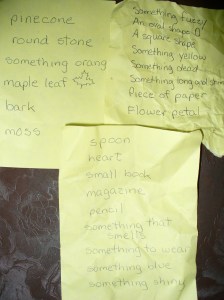 pinecone
round stone
something orang
maple leaf
bark
moss
Something fuzzy
An oval shape
A square shape
Something yellow
Something dead
Something long and
Piece of paper
Flower petal
spoon
heart
small book
magazine
pencil
something that
smells
something to wear
something blue
something shiny